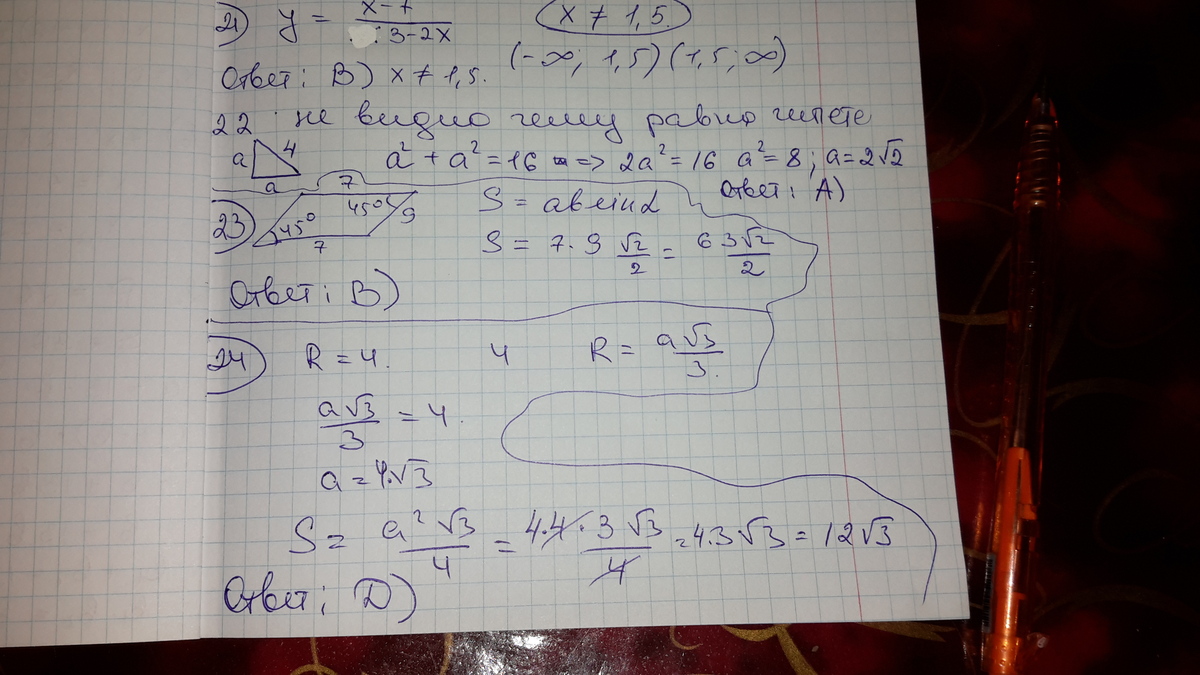 21) y = x-7 / 3-2x x ≠ 1,5.
(-∞; 1,5) (1,5; ∞)
Ответ: B) x ≠ 1,5.
22 не видно чему равно
a 4 a a² + a² = 16 => 2a² = 16 a² = 8; a = 2√2
Ответ: A)
23) 7 45° 45° 9 7 S = ab sin α
S = 7·9 √2/2 = 63√2/2
Ответ: B)
24) R = 4. 4 R = a√3/3.
a√3/3 = 4.
a = 4·√3
S = a²√3/4 = 4·4·3√3/4 = 4·3√3 = 12√3
Ответ: D)